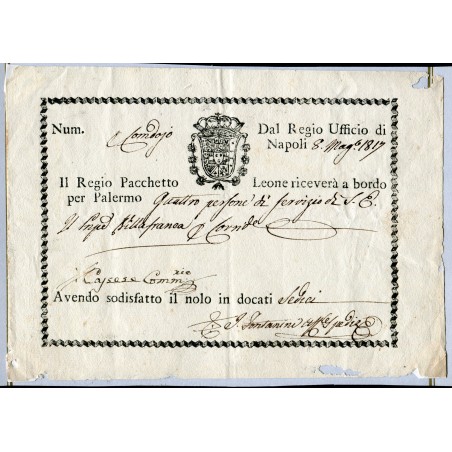 Num. Dal Regio Ufficio di
Napoli 8. Mag.o 1817
Il Regio Pacchetto Leone riceverà a bordo
per Palermo Quattro persone di servizio di S. E.
Il Villafranca
Comm.rio
Avendo sodisfatto il nolo in docati Sedici